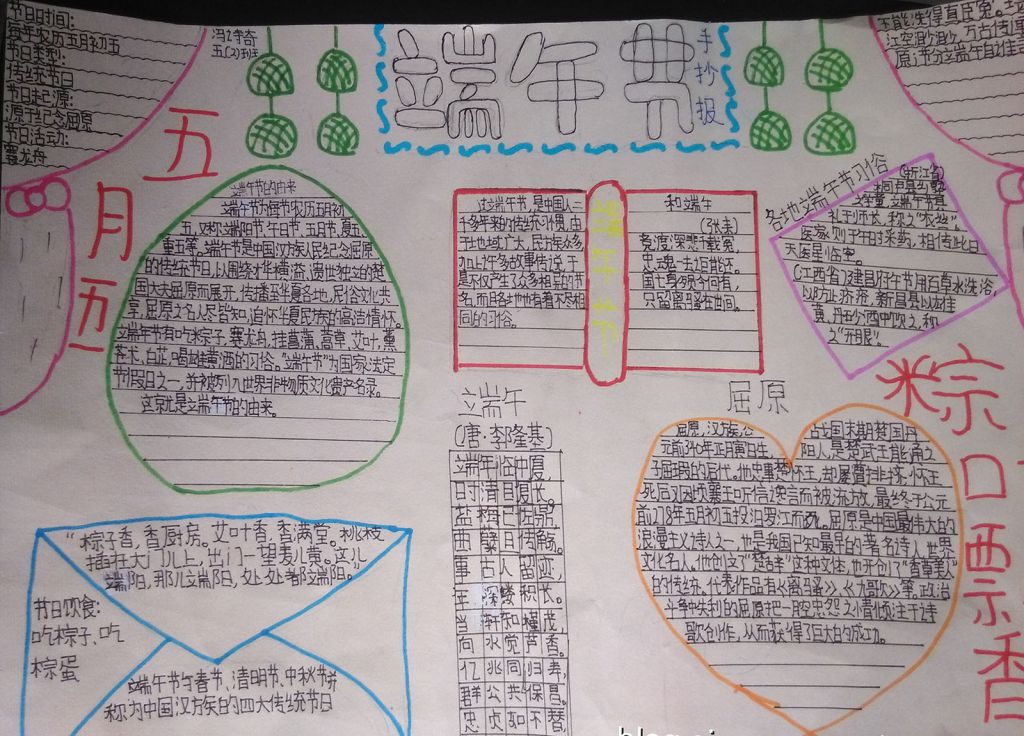 节日时间:
每年农历五月初五
节日类型:
传统节日
节日起源:
源于纪念屈原
节日活动:
赛龙舟
五(2)班
端午节
手抄报
五
月
五
端午节的由来
端午节为每年农历五月初
五,又称端阳节,午日节,五日节,夏五,
重五等。端午节是中国汉族人民纪念屈原
的传统节日,以围绕才华横溢,遗世独立的楚
国大夫屈原而展开,传播至华夏各地,民俗文化共
享,屈原之名人尽皆知,追怀华夏民族的高洁情怀。
端午节有吃粽子,赛龙舟,挂菖蒲,蒿草,艾叶,薰
苍术,白芷,喝雄黄酒的习俗。“端午节”为国家法定
节假日之一,并被列入世界非物质文化遗产名录。
这就是端午节的由来。
过端午节,是中国人二
千多年来的传统习惯,由
于地域广大,民族众多,
加上许多故事传说,于
是不仅产生了众多相异的节
名,而且各地也有着不尽相
同的习俗。
端午节
和端午
(张耒)
竞渡深悲千载冤,
忠魂一去讵能还。
国亡身殒今何有,
只留离骚在世间。
各地端午节习俗
(浙江省)
桐庐县
礼于师长,称之“衣丝”。
医家则于午时采药,相传此日
天医星临空。
(江西省)建昌府午节用百草水洗浴,
以防止疥疮,新昌县以雄
之“开眼”。
粽
口
飘
香
端午
(唐·李隆基)
端午临中夏,
时清日复长。
盐梅已佐鼎,
曲糵且传觞。
事古人留迹,
年深缕积长。
当轩知槿茂,
向水觉芦香。
亿兆同归寿,
群公共保昌。
忠贞如不替,
屈原
屈原,汉族,公
元前340年正月寅日生,
子屈瑕的后代。他忠事楚怀王,却屡遭排挤,怀王
死后又因顷襄王听信谗言而被流放,最终于公元
前278年五月初五投汨罗江而死。屈原是中国最伟大的
浪漫主义诗人之一,也是我国已知最早的著名诗人,世界
文化名人。他创立了“楚辞”这种文体,也开创了“香草美人”
的传统。代表作品有《离骚》,《九歌》等,政治
斗争中失利的屈原把一腔忠怨之情倾注于诗
歌创作,从而获得了巨大的成功。
“粽子香,香厨房。艾叶香,香满堂。桃枝
插在大门上,出门一望麦儿黄。这儿
端阳,那儿端阳,处处都端阳。
节日饮食:
吃粽子、吃
粽蛋
端午节与春节、清明节、中秋节并
称为中国汉族的四大传统节日